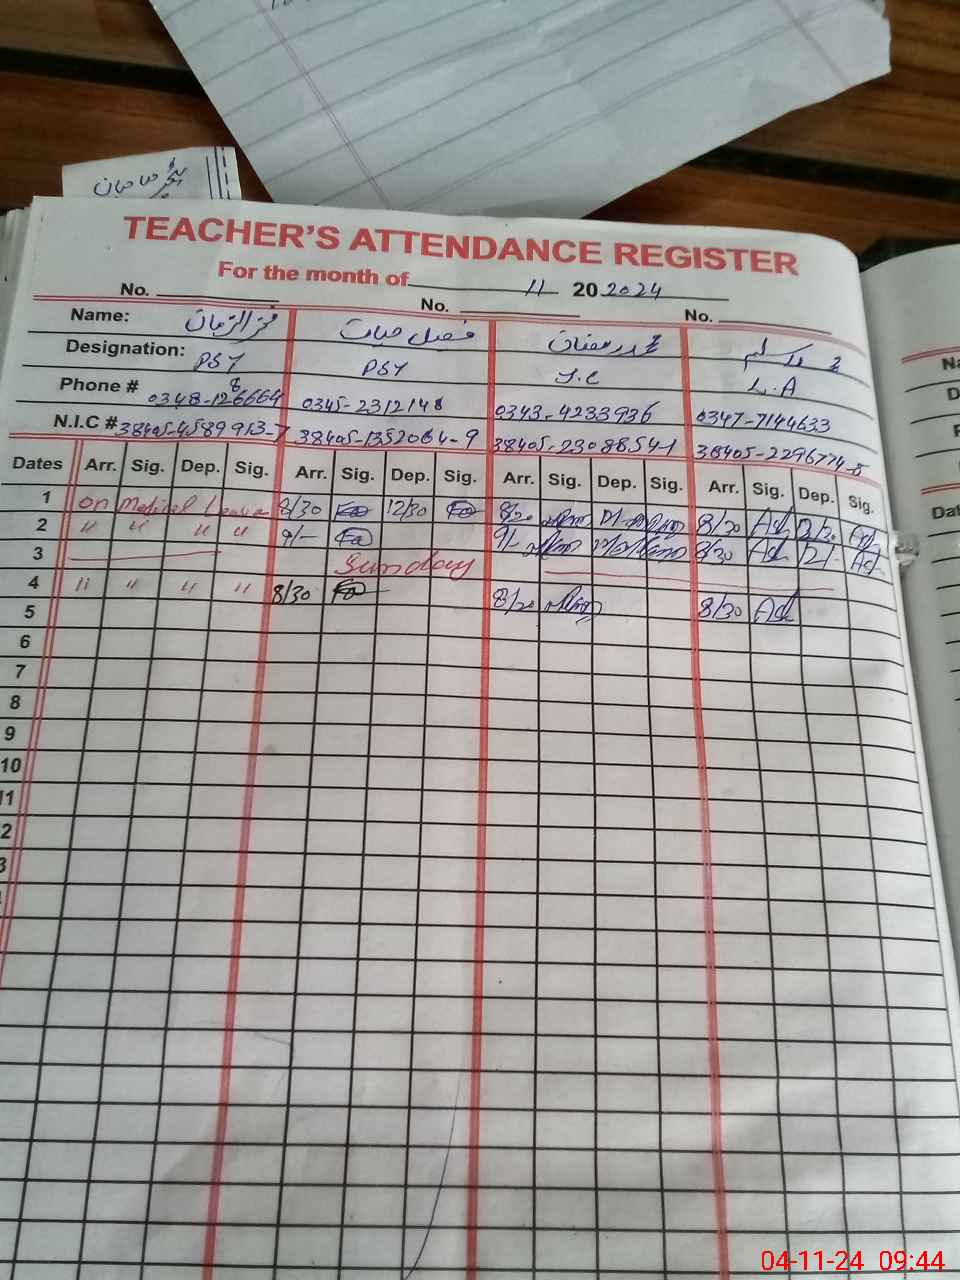 TEACHER'S ATTENDANCE REGISTER
For the month of 11 20 2024
No. No. No.
Name: فخر الزمان فیصل حیات محمد رمضان محمد اسلم
Designation: PST PST J.C L.A
Phone # 0348-1286664 0345-2312148 0343-4233936 0347-7144633
N.I.C # 38405-4589913-7 38405-1352064-9 38405-2308854-1 38405-2296774-5
Dates Arr. Sig. Dep. Sig. Arr. Sig. Dep. Sig. Arr. Sig. Dep. Sig. Arr. Sig. Dep. Sig.
1 on Medical Leave 8/30 12/30 8/30 8/30
2 " " " " 9/- 9/- 8/30 12/-
3 Sunday
4 " " " " 8/30 8/30 8/30
5
6
7
8
9
10
11
2
3
Na
D
P
Dat
04-11-24 09:44